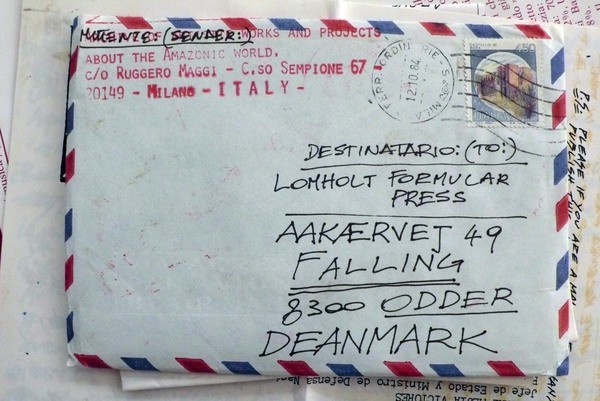 MITTENTE: (SENDER:)
WORKS AND PROJECTS
ABOUT THE AMAZONIC WORLD.
c/o RUGGERO MAGGI - C.SO SEMPIONE 67
20149 - MILANO - ITALY -
12.10.84
450
DESTINATARIO: (TO:)
LOMHOLT FORMULAR
PRESS
AAKÆRVEJ 49
FALLING
8300 ODDER
DEANMARK
P.S. PLEASE IF YOU ARE A MAIL
PUBLISH THIS
Jefe de Estado y Ministro de Defensa Naci